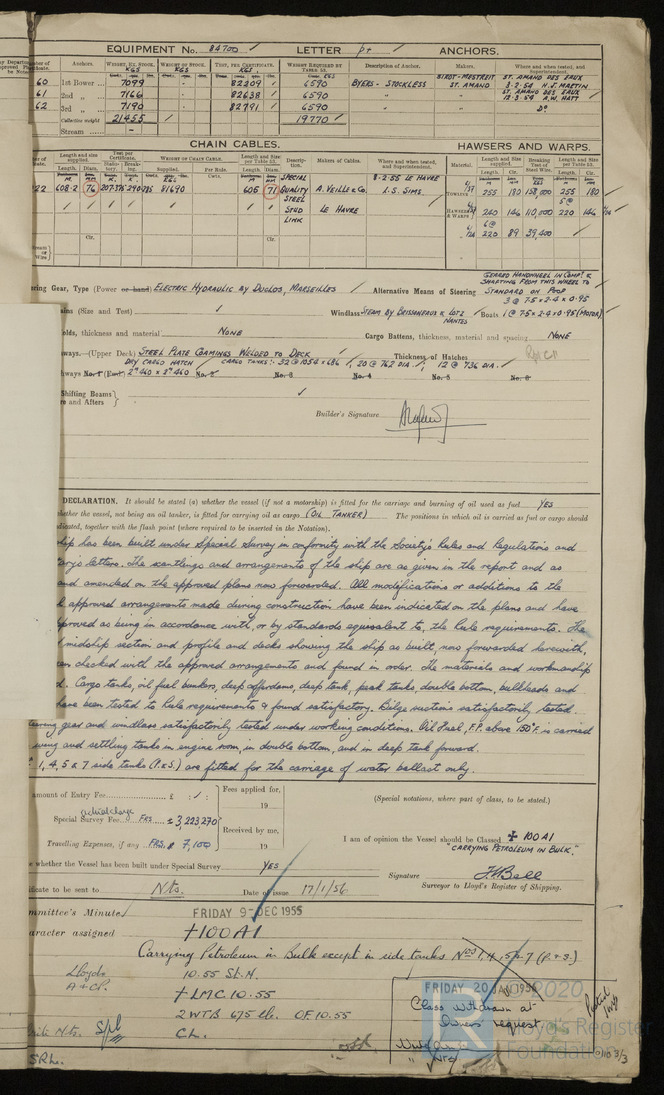 EQUIPMENT No. 84700 LETTER pt ANCHORS.
WEIGHT, EX. STOCK. WEIGHT OF STOCK. TEST, PER CERTIFICATE. WEIGHT REQUIRED BY TABLE 53. Description of Anchor. Makers. Where and when tested, and Superintendent.
60 1st Bower 7099 - 82209 6590 BYERS - STOCKLESS ST. AMAND DES EAUX
61 2nd 7166 - 82638 6590 ST. AMAND 3-2-54 H.J. MARTIN
62 3rd 7190 - 82791 6590 12-3-54 A.W. HATT
Collective weight 21455 19770
Stream -
CHAIN CABLES. HAWSERS AND WARPS.
Length and size supplied. Test per Certificate. WEIGHT OF CHAIN CABLE. Length and size per Table 53. Description. Makers of Cables. Where and when tested, and Superintendent. Material. Length and Size supplied. Breaking Test of Steel Wire. Length and Size per Table 53.
Supplied. Per Rule.
608.2 76 81690 605 71 SPECIAL QUALITY STEEL STUD LINK LE HAVRE 8-2-55 LE HAVRE L.S. SIMS
TOWLINES 255 180 158,000 255 180
HAWSERS & WARPS 240 146 110,000 220 146
6@
220 89 39,400
GEARED HANDWHEEL IN COMPT. & SHAFTING FROM THIS WHEEL TO
ering Gear, Type (Power or hand) ELECTRIC HYDRAULIC BY DUCLOS, MARSEILLES Alternative Means of Steering STANDARD ON POOP
3 @ 7.5 x 2.4 x 0.95
ains (Size and Test) Windlass STEAM BY BRISSONEAUX & LOTZ NANTES Boats 1 @ 7.5 x 2.4 x 0.95 (MOTOR)
olds, thickness and material NONE Cargo Battens, thickness, material and spacing NONE
ways.—(Upper Deck) STEEL PLATE COAMINGS WELDED TO DECK Thickness of Hatches
DRY CARGO HATCH CARGO TANKS:- 32 @ 1054 x 686, 20 @ 762 DIA. 12 @ 736 DIA.
hways No. 1 2m 460 x 2m 460 No. 2 No. 3 No. 4 No. 5 No. 6
Shifting Beams
re and Afters
Builder's Signature
DECLARATION. It should be stated (a) whether the vessel (if not a motorship) is fitted for the carriage and burning of oil used as fuel YES
hether the vessel, not being an oil tanker, is fitted for carrying oil as cargo (OIL TANKER) The positions in which oil is carried as fuel or cargo should
dicated, together with the flash point (where required to be inserted in the Notation).
ship has been built under Special Survey in conformity with the Society's Rules and Regulations and
ary's letters. The scantlings and arrangements of the ship are as given in the report and as
and amended on the approved plans now forwarded. All modifications or additions to the
approved arrangements made during construction have been indicated on the plans and have
proved as being in accordance with, or by standards equivalent to, the Rule requirements. The
midship section and profile and decks showing the ship as built, now forwarded herewith,
en checked with the approved arrangements and found in order. The materials and workmanship
d. Cargo tanks, oil fuel bunkers, deep cofferdams, deep tank, peak tanks, double bottom, bulkheads and
have been tested to Rule requirements & found satisfactory. Bilge suctions satisfactorily tested.
teering gear and windlass satisfactorily tested under working conditions. Oil Fuel, F.P. above 150°F. is carried
wing and settling tanks in engine room, in double bottom, and in deep tank forward.
1, 4, 5 & 7 side tanks (P.&S.) are fitted for the carriage of water ballast only.
amount of Entry Fee £ : : Fees applied for, (Special notations, where part of class, to be stated.)
19
Special Survey Fee FRS. 3,223,270 Received by me, I am of opinion the Vessel should be Classed 100 A1
Travelling Expenses, if any FRS. 7,100 19 "CARRYING PETROLEUM IN BULK."
e whether the Vessel has been built under Special Survey YES Signature
Surveyor to Lloyd's Register of Shipping.
ificate to be sent to Nts. Date of issue 17/1/56
mmittee's Minute FRIDAY 9-DEC 1955
aracter assigned +100 A1
Carrying Petroleum in Bulk except in side tanks Nos 1, 4, 5 & 7 (p & s.)
Lloyds 10.55 St. N.
A & CP. +LMC 10.55
2 WTB 675 lb. OF 10.55
CL.
Spl
SRL.
FRIDAY 20 JAN 1956
Class withdrawn at
Owners' request
2020
Lloyd's Register
Foundation